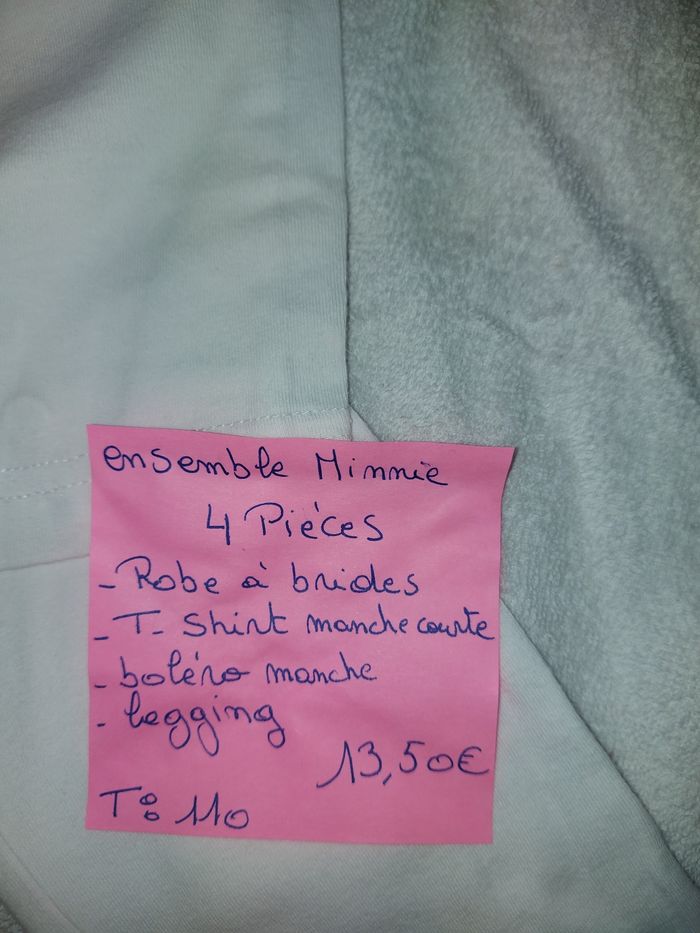 ensemble Minnie
4 Pièces
- Robe à brides
- T-Shirt manche courte
- boléro manche
- legging
13,50€
T: 110